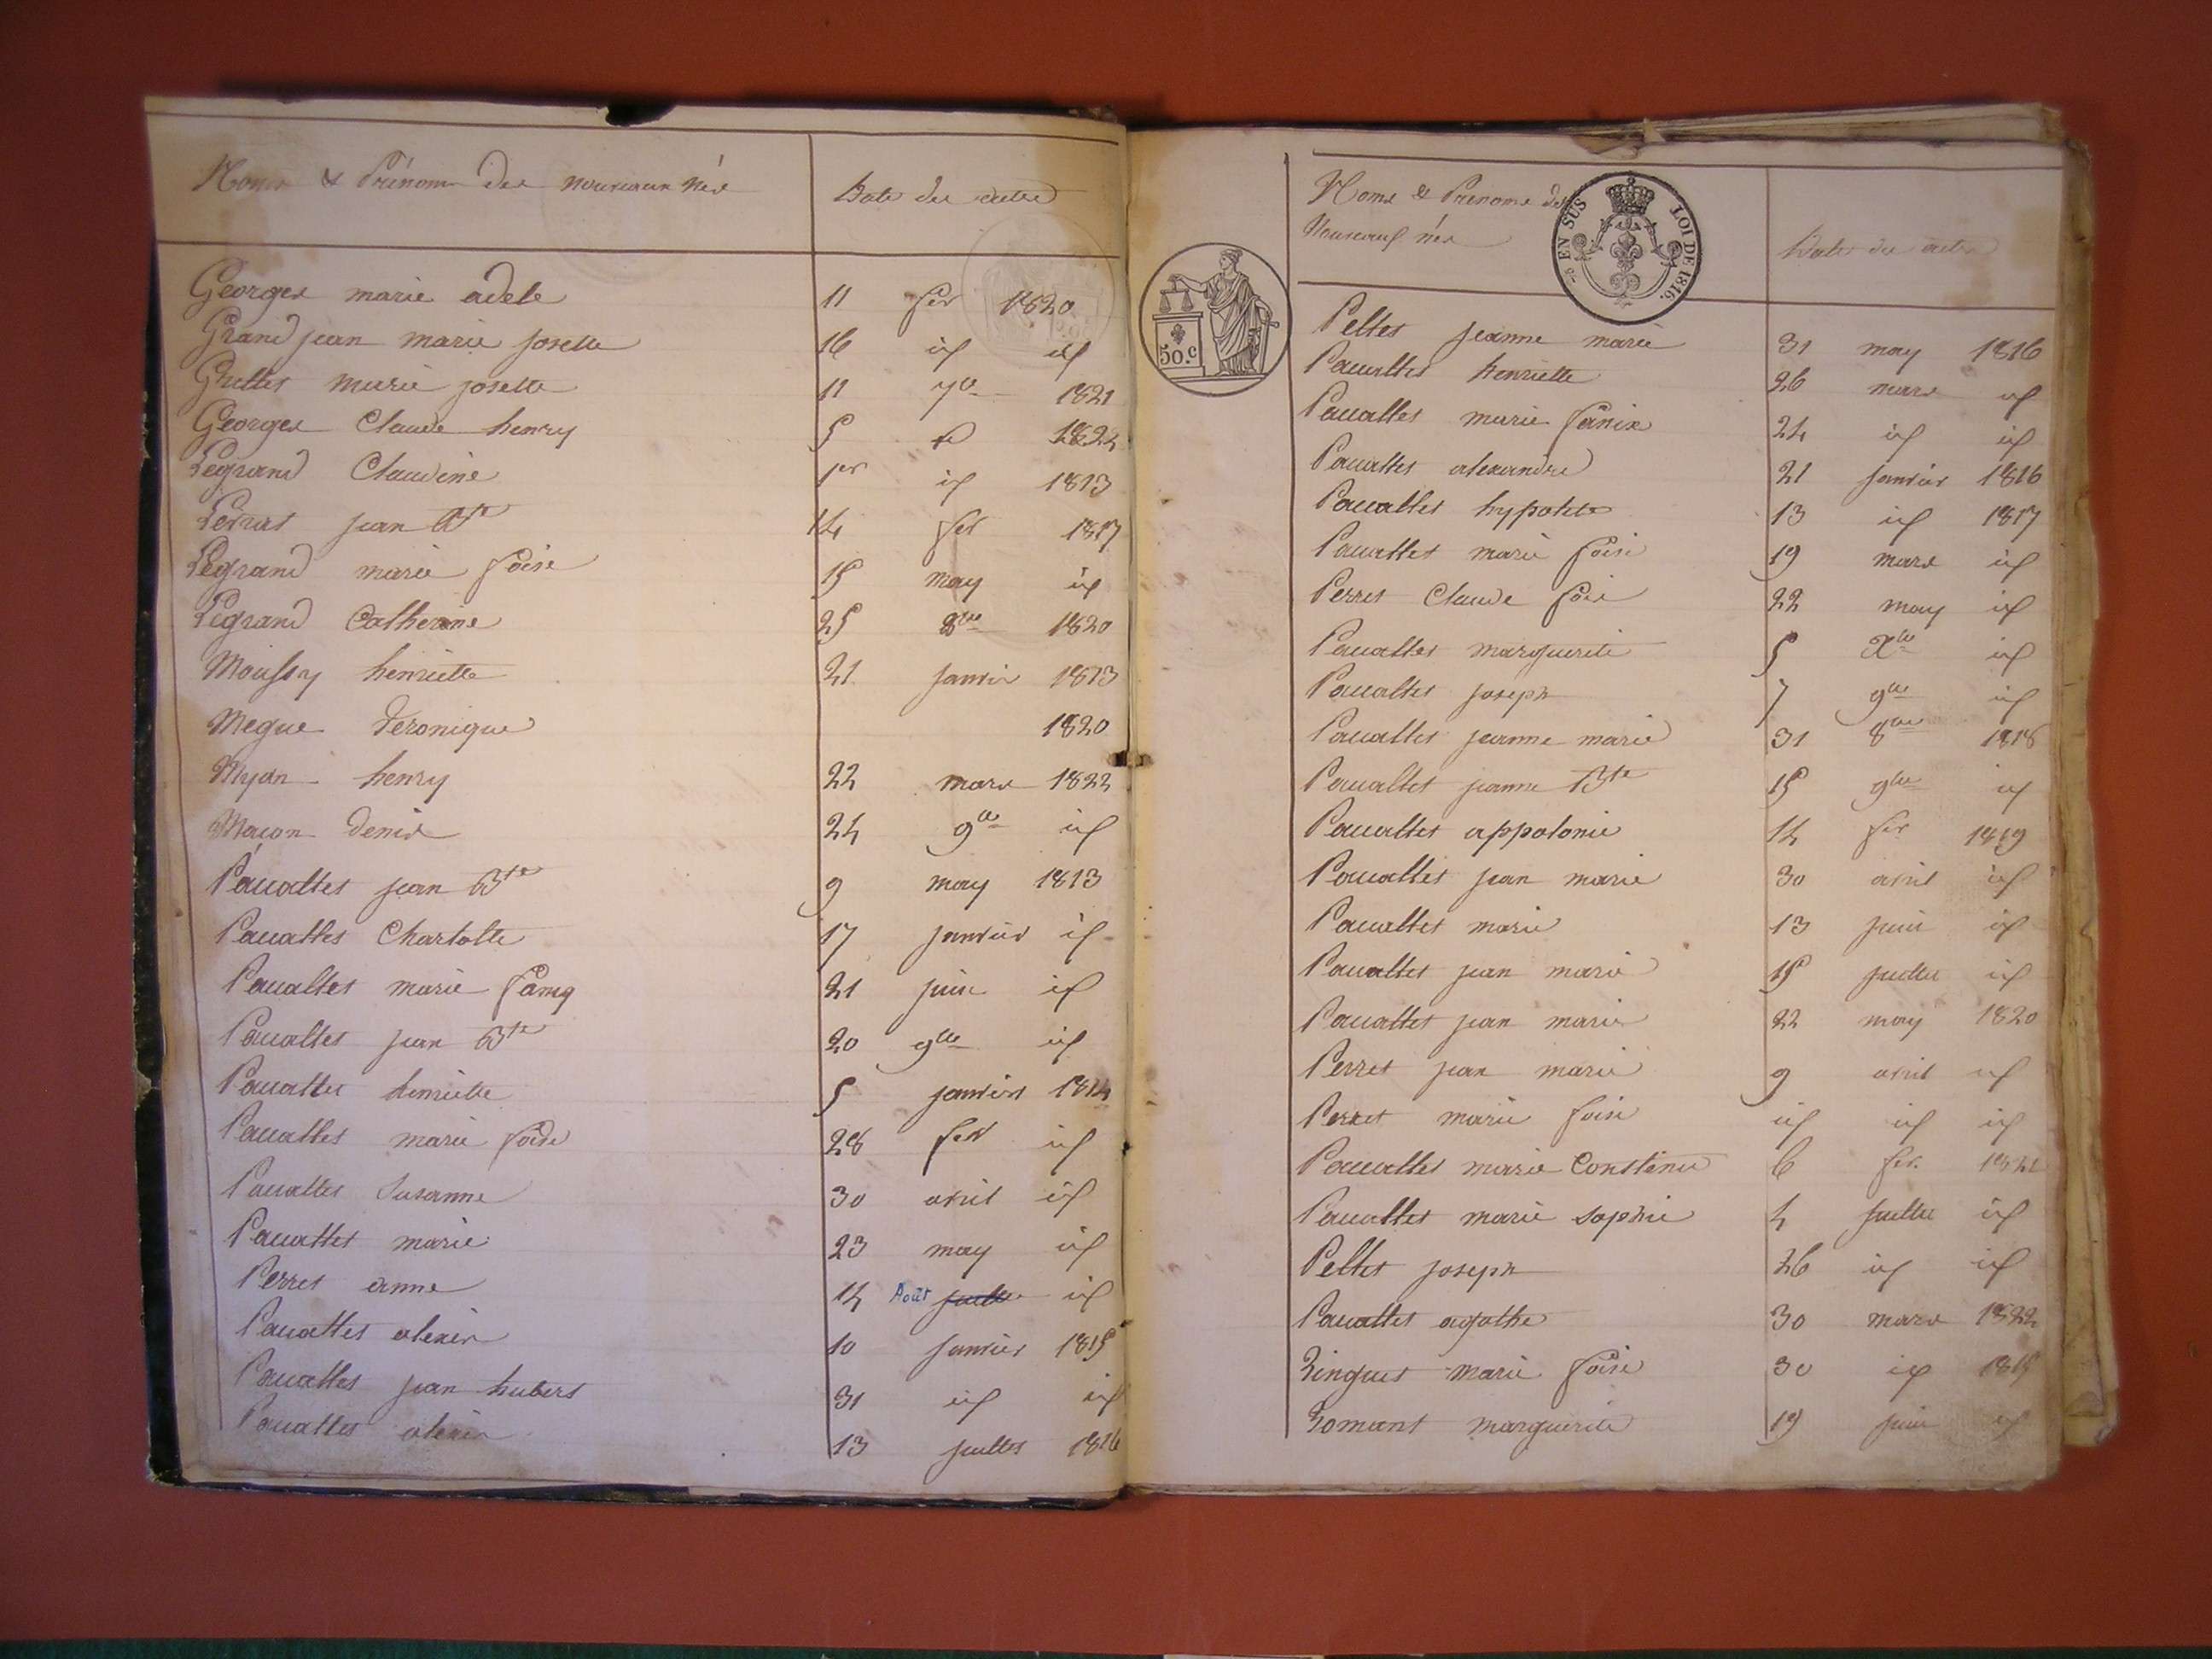 Noms & Prénoms des nouveaux nés Date des actes
Georges marie adele 11 fer 1820
Grandjean marie josette 16 id id
Grillet marie josette 11 7bre 1821
Georges Claude henry 5 1822
Legrand Claudine 1er id 1813
jean Bte 14 fer 1817
Legrand marie foise 15 may id
Legrand Catherine 25 8bre 1820
Moussry henriette 21 janvier 1813
Megue Veronique 1820
Myon henry 22 mars 1822
Maçon denis 24 9bre id
Pauattet jean Bte 9 may 1813
Pauattet Charlotte 17 janvier id
Pauattet marie 21 juin id
Pauattet jean Bte 20 9bre id
Pauattet henriette 5 janvier 1814
Pauattet marie foise 28 fer id
Pauattet Susanne 30 avril id
Pauattet marie 23 may id
Perret anne 14 Août juillet id
Pauattet alexis 10 janvier 1815
Pauattet jean hubert 31 id id
Pauattet alexis 13 juillet 1816
50.c
Noms & Prénoms des
Nouveaux nés
EN SUS LOI DE 1816.
Dates des actes
Peltet jeanne marie 31 may 1816
Pauattet henriette 26 mars id
Pauattet marie 24 id id
Pauattet alexandre 21 janvier 1816
Pauattet hypolite 13 id 1817
Pauattet marie foise 19 mars id
Perret Claude fois 22 may id
Pauattet marguerite 5 Xbre id
Pauattet joseph 7 9bre id
Pauattet jeanne marie 31 8bre 1818
Pauattet jeanne Bte 15 9bre id
Pauattet appolonie 14 fer 1819
Pauattet jean marie 30 avril id
Pauattet marie 13 juin id
Pauattet jean marie 15 juillet id
Pauattet jean marie 22 may 1820
Perret jean marie 9 avril id
Perret marie foise id id id
Pauattet marie Constence 6 fer 1821
Pauattet marie Sophie 4 juillet id
Peltet joseph 26 id id
Pauattet agathe 30 mars 1822
marie foise 30 id 1815
Romant marguerite 19 juin id